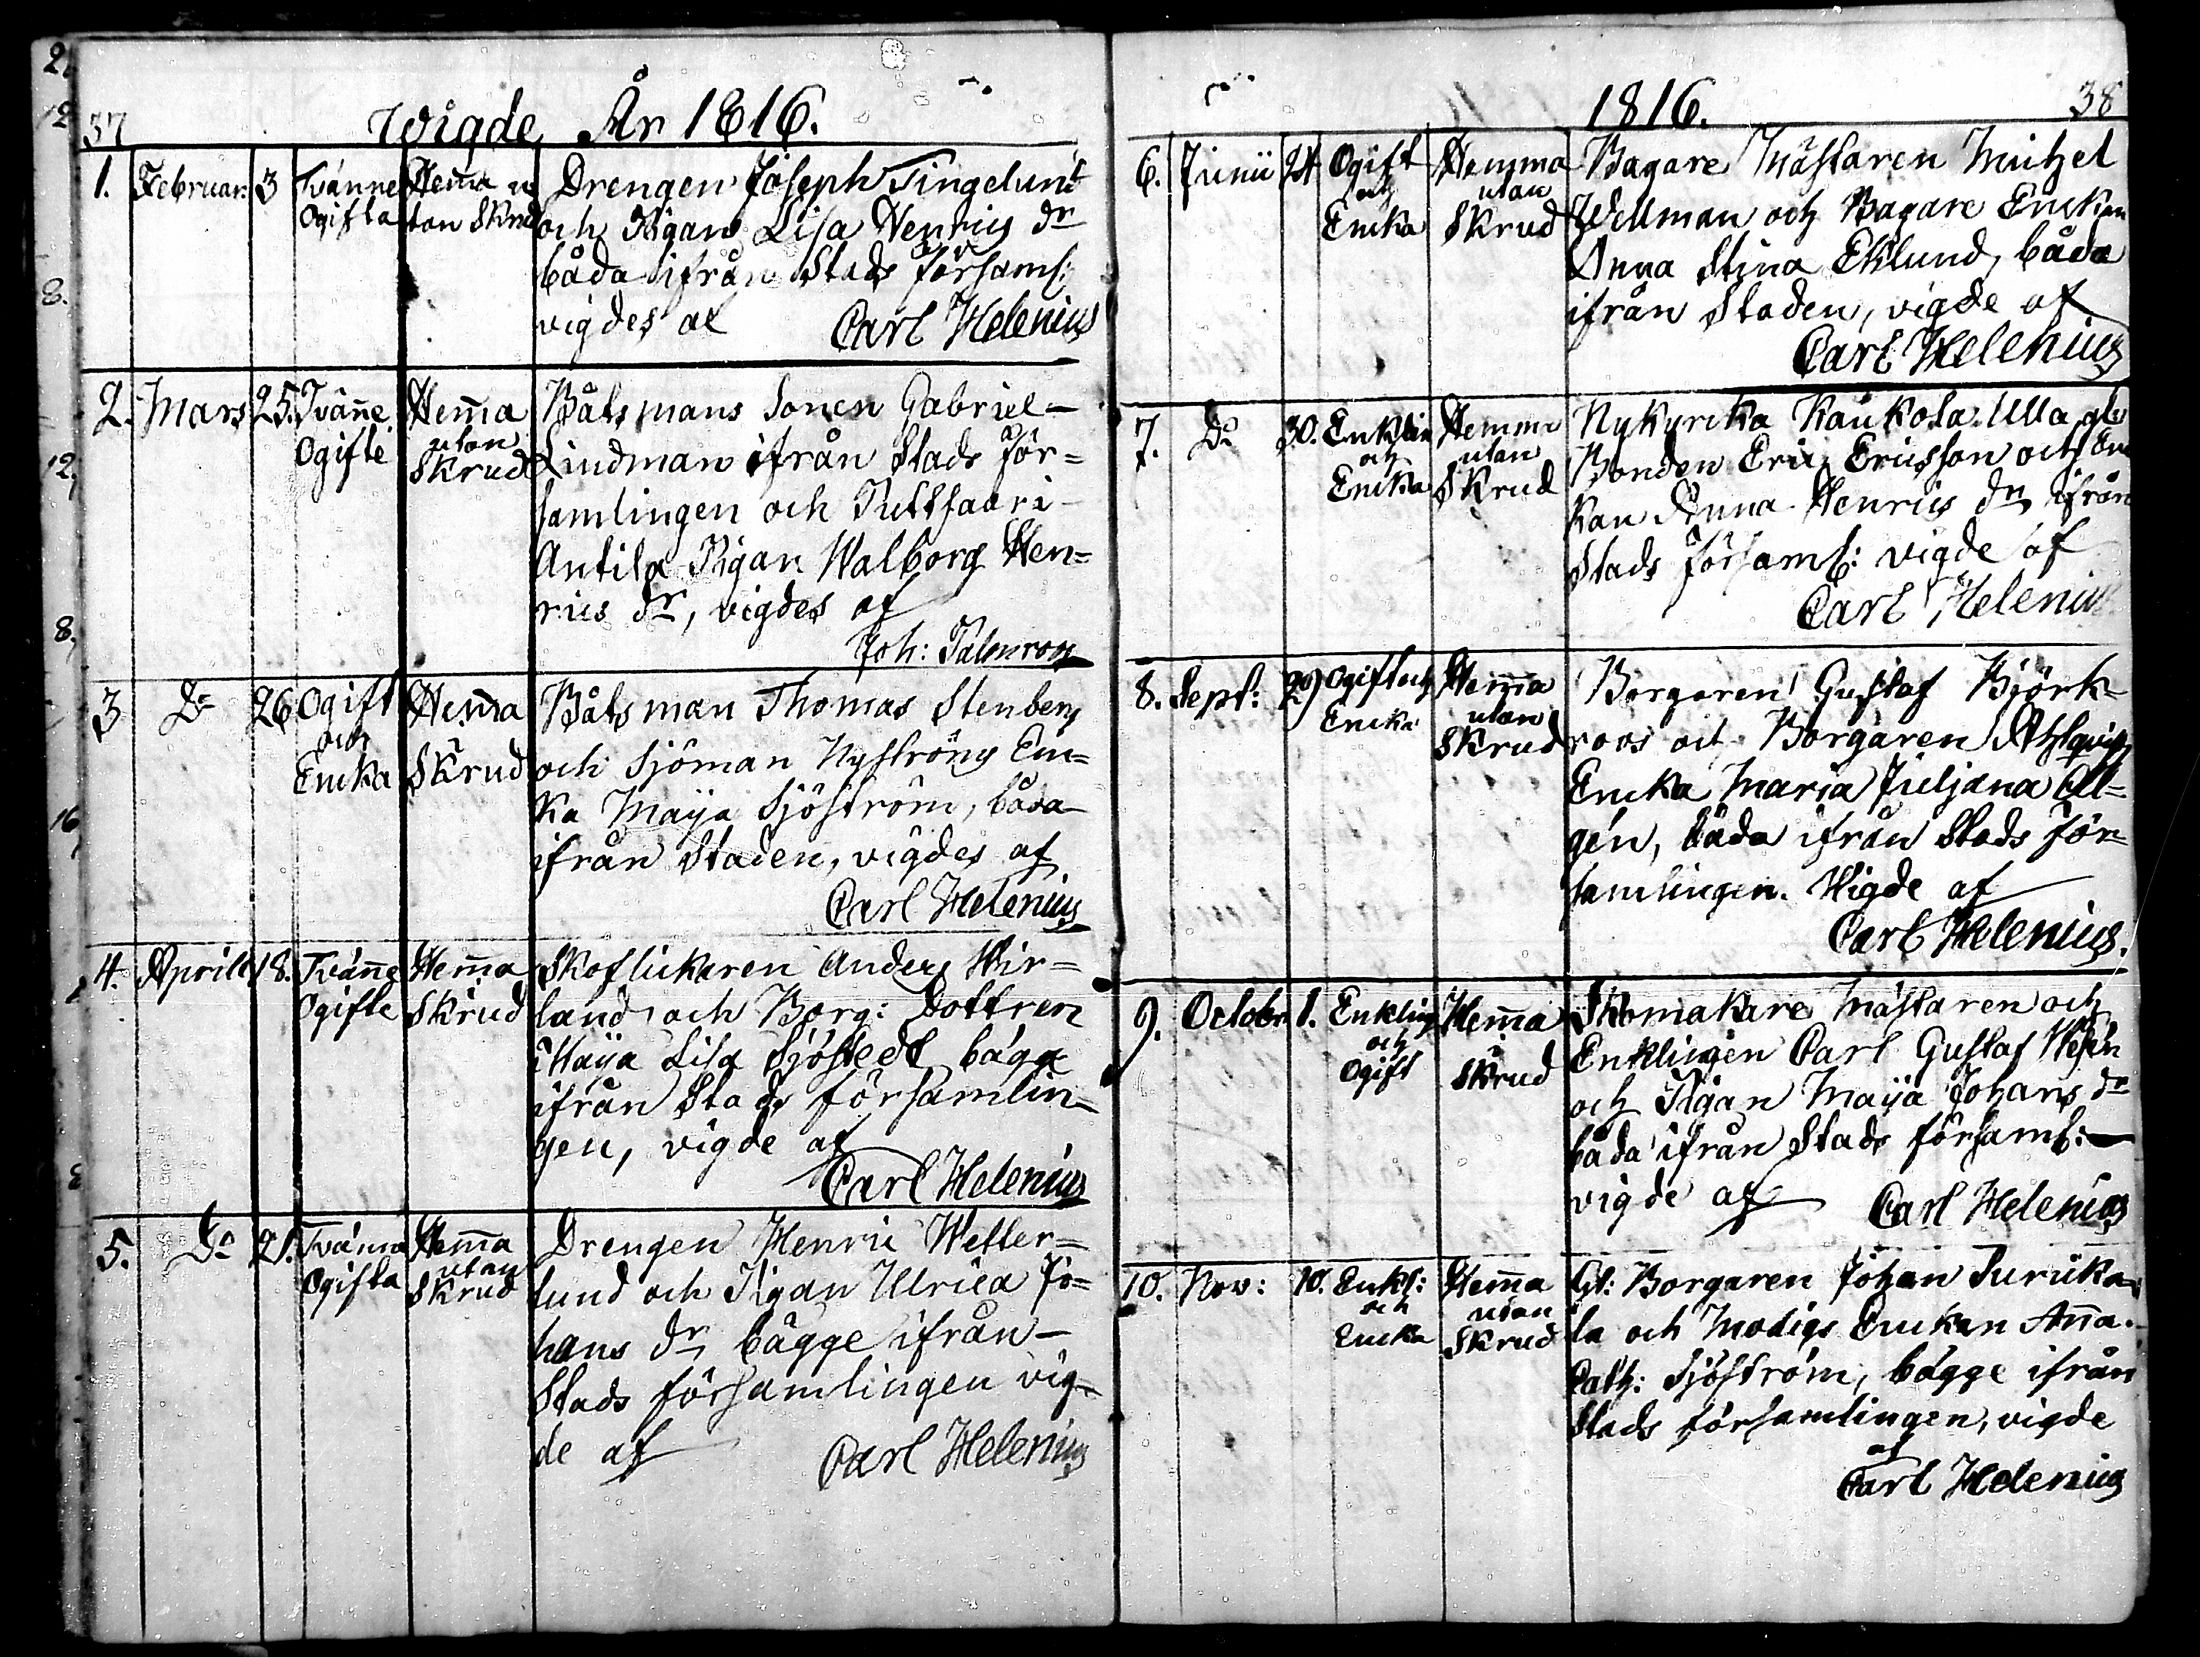 37
Wigde År 1816.
1. Februar. 3 Tvänne Ogifta Hem̄a utan Skrud
Drengen Joseph Tingelund
och Pigan Lisa Henrics dr
båda ifrån Stads församl:
vigdes af Carl Helenius
2. Mars 25. Tvän̄e Ogifte Hem̄a utan Skrud
Båtsmans Sonen Gabriel
Lindman ifrån Stads för=
samlingen och Tuttsaari
Antila Pigan Walborg Hen=
rics dr, vigdes af
Joh:
3 Do 26 Ogift och Encka Hem̄a i Skrud
Båtsman Thomas Stenberg
och Sjöman Nyströms En=
ka Maija Sjöström, båda
ifrån Staden, vigdes af
Carl Helenius
4. Aprill 18. Tvän̄e Ogifte Hem̄a i Skrud
Skoflickaren Anders Wir=
land och Borg: Dottren
Maija Lisa Sjöstedt bägge
ifrån Stads församlin=
gen, vigde af
Carl Helenius
5. Do 21. Tvänna Ogifta Hem̄a utan Skrud
Drengen Henric Wetter=
lund och Pigan Ulrica Jo=
hans dr bägge ifrån
Stads församlingen vig=
de af Carl Helenius
1816. 38
6. Junii 24 Ogift och Encka Hemma utan Skrud
Bagare Mästaren Michel
Wellman och Bagare Enckan
Anna Stina Eklund, båda
ifrån Staden, vigde af
Carl Helenius
7. Do 30. Enkling och Encka Hemma utan Skrud
Nykyrcka Kaukola Ulla gla
Bonden Eric Ericsson och En
kan Anna Henrics dr ifrån
Stads församl: vigde af
Carl Helenius
8. Sept: 29 Ogift och Encka Hem̄a utan Skrud
Borgaren Gustaf Björk=
roos och Borgaren Ahlqvists
Encka Maria Juljana Ell=
gén, båda ifrån Stads för=
samlingen. Wigde af
Carl Helenius.
9. Octobr 1. Enkling och Ogift Hem̄a i Skrud
Skomakare Mästaren och
Enklingen Carl Gustaf Wesén
och Pigan Maija Johans dr
båda ifrån Stads församl:
vigde af Carl Helenius
10. Nov: 10. Enkl: och Encka Hem̄a utan Skrud
Gl: Borgaren Johan Turicka
la och Modigs Enckan An̄a
Cath: Sjöström, bägge ifrån
Stads församlingen, vigde
af
Carl Helenius